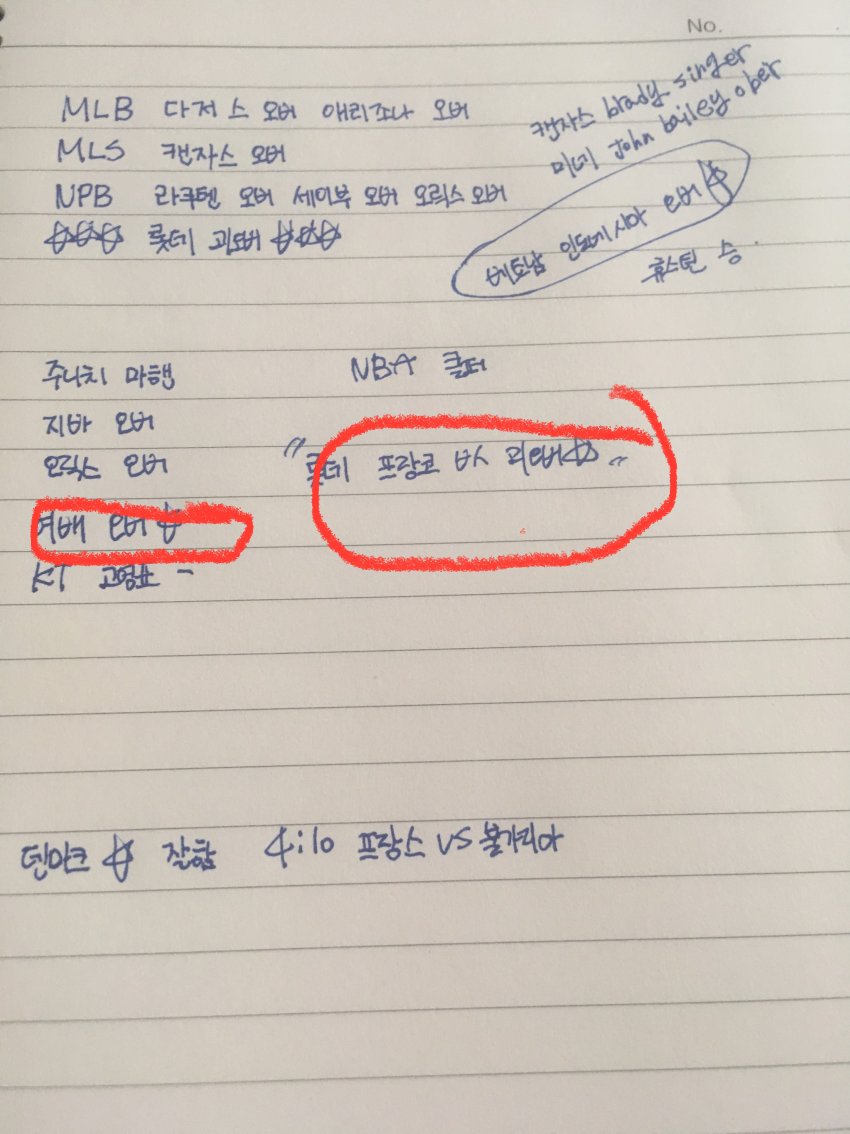 No.
MLB 다저스 오버 애리조나 오버
MLS 캔자스 오버
NPB 라쿠텐 오버 세이부 오버 오릭스 오버
☆☆☆ 롯데 괴오버 ☆☆☆
캔자스 brady singer
미네 john bailey ober
베트남 인도네시아 오버 ☆
휴스턴 승.
주니치 마핸
지바 오버
오릭스 오버
여배 오버 ☆
KT 고영표 -
NBA 클더
"롯데 프랑코 vs 괴오버☆"
덴마크 ☆ 잘함 4:10 프랑스 VS 불가리아